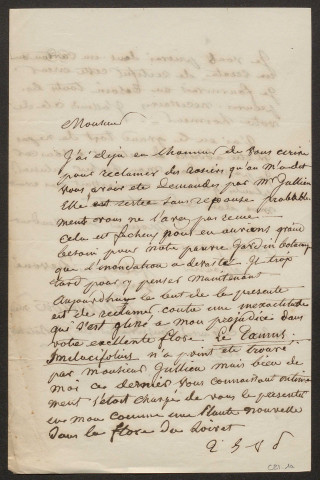 Monsieur
J'ai déja eu l'honneur de vous ecrire
pour reclamer des rosiers qu'on m'a dit
vous avais ete demandés par Mr Jullien
Elle est restée sans reponse probable
ment vous ne l'avez pas recue
Cela est facheux nous en aurions grand
besoin pour notre pauvre Jardin botanique
que l'inondation a devasté Il trop
tard pour y penser maintenant
Aujourdhui le but de la presente
est de reclamer contre une inexactitude
qui s'est glissé a mon prejudice dans
votre excellente flore. Le
n'a point ete trouvé
par monsieur Jullien mais bien de
moi ce dernier vous connaissant intime
ment s'etoit chargé de vous le presenter
en mon comme une plante nouvelle
dans la flore du Loiret